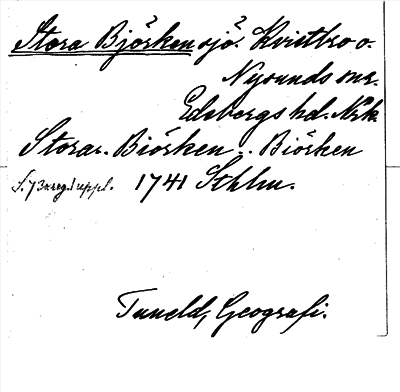 Stora Björken sjö. Kvistbro o.
Nysunds snr.
Edsbergs hd. Nrk.
Stora.. Biörken.. Biörken
s. 73 1741 Sthlm.
Tuneld, Geografi.